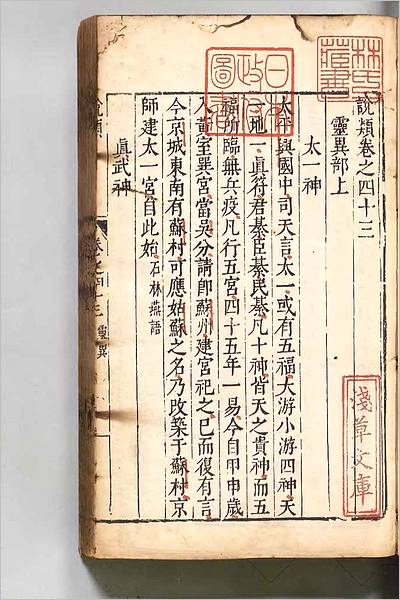 說類卷之四十三
靈異部上
太一神
太平興國中司天言太一或有五福大游小游四神天
一地一眞符君綦臣綦民綦凡十神皆天之貴神而五
福所臨無兵疫凡行五宮四十五年一易今自甲申歲
入黃室巽宮當吳分請卽蘇州建宮祀之已而復有言
今京城東南有蘇村可應姑蘇之名乃改築于蘇村京
師建太一宮自此始 石林燕語
眞武神
說類
卷之四十三
靈異
林氏藏書
日本政府圖書
淺草文庫